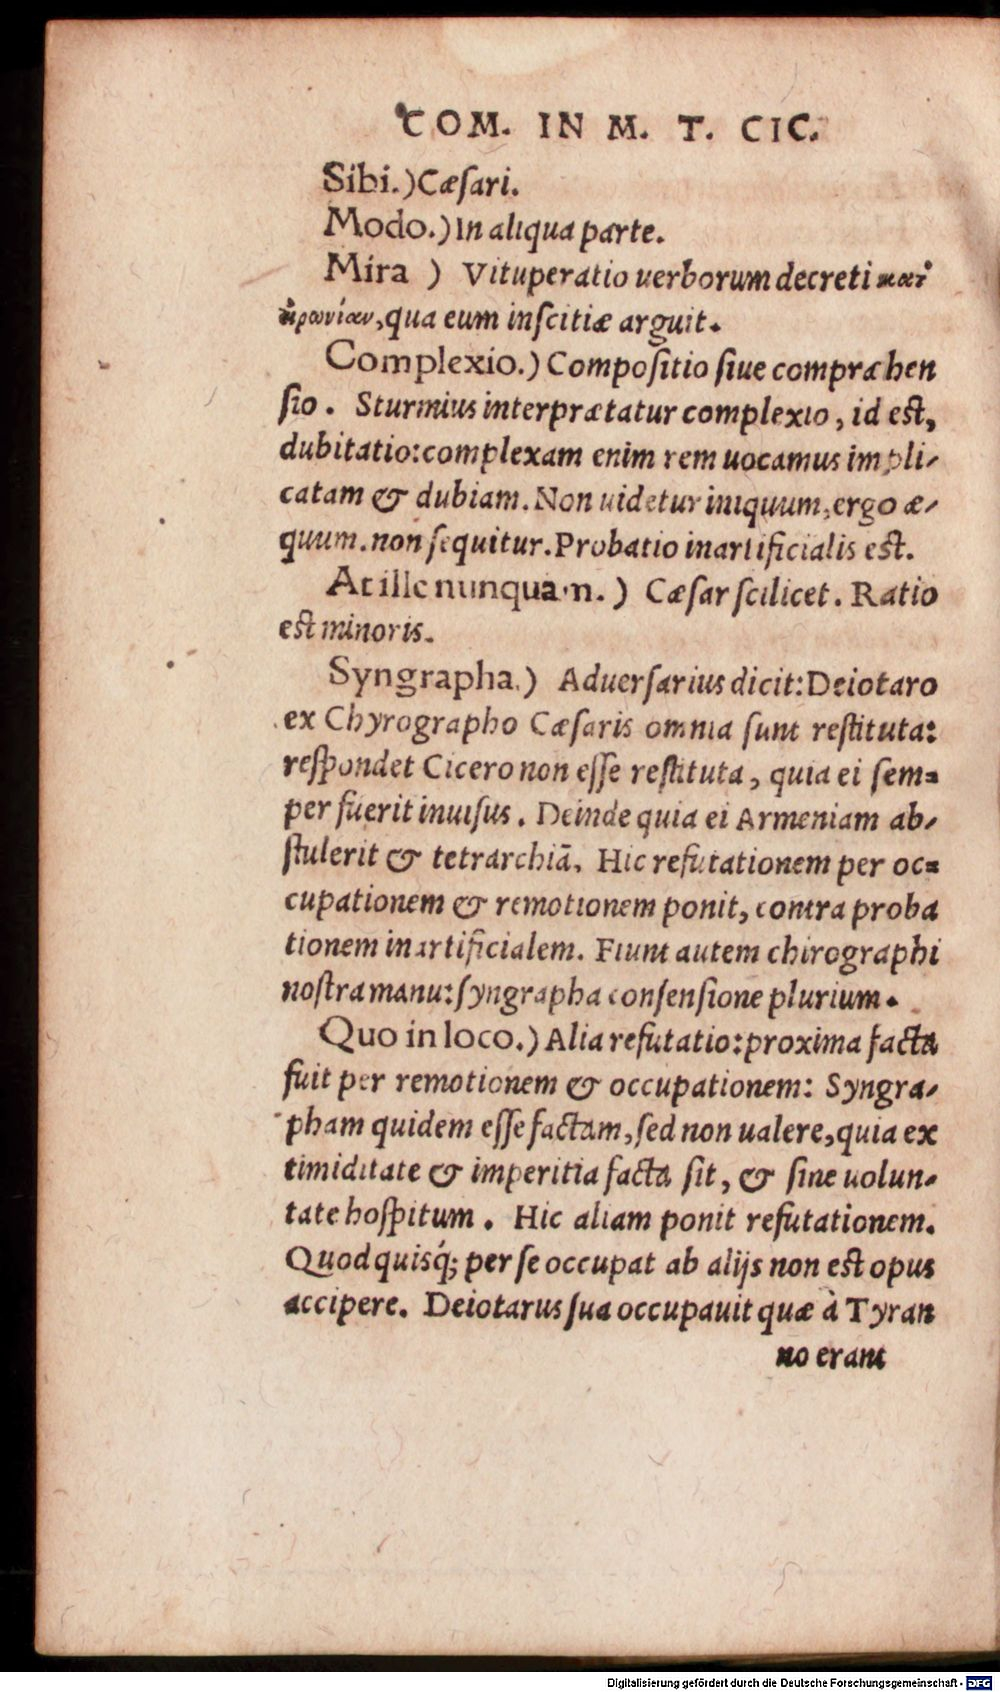 COM. IN M. T. CIC.
Sibi.) Cæſari.
Modo.) In aliqua parte.
Mira ) Vituperatio uerborum decreti κατ᾽
εἰρωνίαν, qua eum inſcitiæ arguit.
Complexio.) Compoſitio ſiue compræhen
ſio. Sturmius interprætatur complexio, id eſt,
dubitatio: complexam enim rem uocamus impli-
catam & dubiam. Non uidetur iniquum, ergo æ-
quum. non ſequitur. Probatio inartificialis eſt.
At ille nunquam.) Cæſar ſcilicet. Ratio
eſt minoris.
Syngrapha.) Aduerſarius dicit: Deiotaro
ex Chyrographo Cæſaris omnia ſunt reſtituta:
reſpondet Cicero non eſſe reſtituta, quia ei ſem=
per fuerit inuiſus. Deinde quia ei Armeniam ab-
ſtulerit & tetrarchiā. Hic refutationem per oc=
cupationem & remotionem ponit, contra proba
tionem inartificialem. Fiunt autem chirographi
noſtra manu: ſyngrapha conſenſione plurium.
Quo in loco.) Alia refutatio: proxima facta
fuit per remotionem & occupationem: Syngra-
pham quidem eſſe factam, ſed non ualere, quia ex
timiditate & imperitia facta ſit, & ſine uolun-
tate hoſpitum. Hic aliam ponit refutationem.
Quod quisq́; per ſe occupat ab alijs non eſt opus
accipere. Deiotarus ſua occupauit quæ à Tyran
no erant
Digitalisierung gefördert durch die Deutsche Forschungsgemeinschaft - DFG